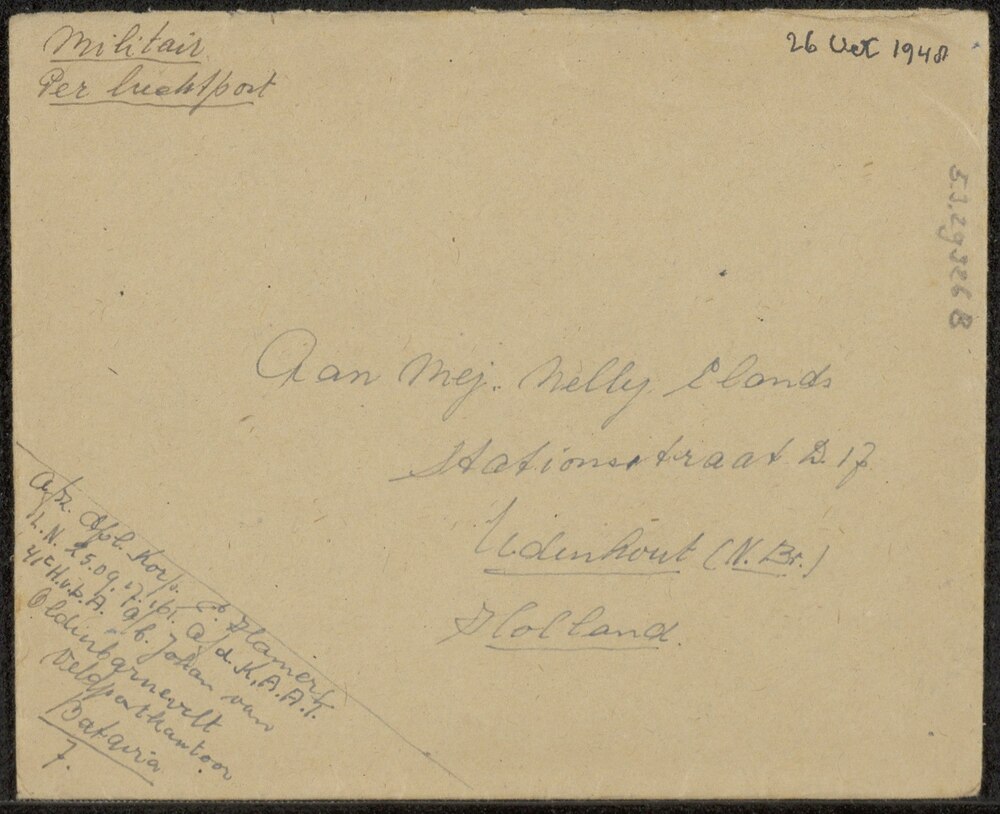 Militair
Per luchtpost
26 Oct 1948
Aan Mej. Nelly Elands
Stationsstraat D. 17
Udenhout (N. Br.)
Holland.
Afz. Kpl. Korp. C. Hamers
L.N. 25.09.17.161. Afd. K.A.A.T.
4e H.v.A. a/b. Johan van
Oldenbarnevelt
Veldpostkantoor
Batavia
7.